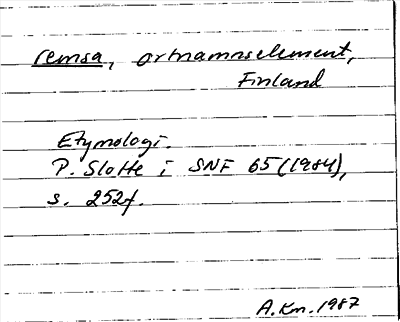 remsa, ortnamnselement,
Finland
Etymologi.
P. Slotte i SNF 65 (1984),
s. 252f.
A.Km. 1987